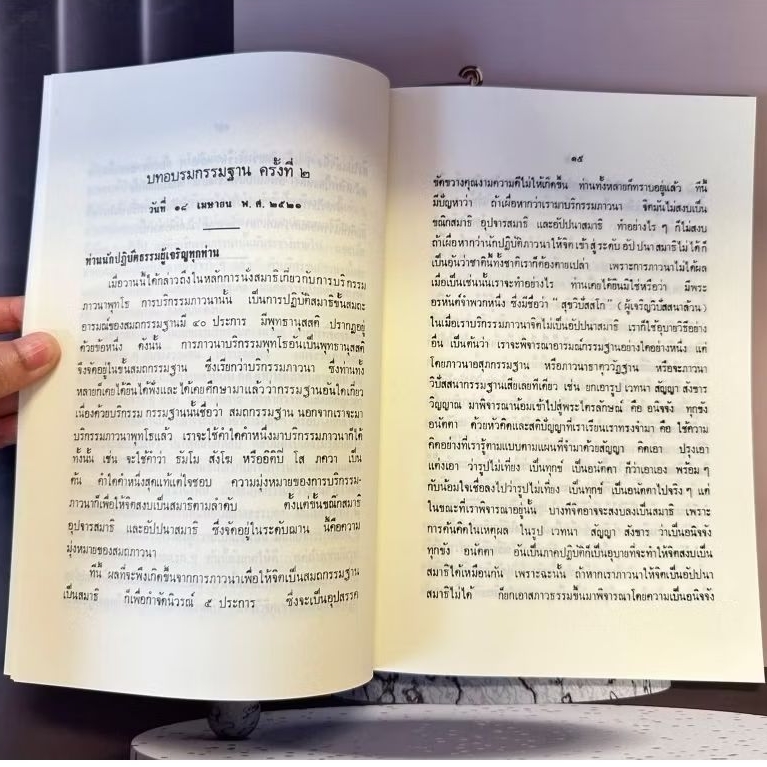 บทอบรมกรรมฐาน ครั้งที่ ๒
วันที่ ๑๘ เมษายน พ.ศ. ๒๕๒๑
ท่านนักปฏิบัติธรรมผู้เจริญทุกท่าน
เมื่อวานนี้ได้กล่าวถึงในหลักการนั่งสมาธิเกี่ยวกับการบริกรรม
ภาวนาพุทโธ การบริกรรมภาวนานั้น เป็นการปฏิบัติสมาธิขั้นสมถะ
อารมณ์ของสมถกรรมฐานมี ๔๐ ประการ มีพุทธานุสสติ ปรากฏอยู่
ด้วยข้อหนึ่ง ดังนั้น การภาวนาบริกรรมพุทโธอันเป็นพุทธานุสสติ
จึงจัดอยู่ในขั้นสมถกรรมฐาน ซึ่งเรียกว่าบริกรรมภาวนา ซึ่งท่านทั้ง
หลายก็เคยได้ยินได้ฟังและได้เคยศึกษามาแล้วว่ากรรมฐานอันใดเกี่ยว
เนื่องด้วยบริกรรม กรรมฐานนั้นชื่อว่า สมถกรรมฐาน นอกจากเราจะมา
บริกรรมภาวนาพุทโธแล้ว เราจะใช้คำใดคำหนึ่งมาบริกรรมภาวนาก็ได้
ทั้งนั้น เช่น จะใช้คำว่า ธัมโม สังโฆ หรืออิติปิ โส ภควา เป็น
ต้น คำใดคำหนึ่งสุดแท้แต่ใจชอบ ความมุ่งหมายของการบริกรรม-
ภาวนาก็เพื่อให้จิตสงบเป็นสมาธิตามลำดับ ตั้งแต่ขั้นขณิกสมาธิ
อุปจารสมาธิ และอัปปนาสมาธิ ซึ่งจัดอยู่ในระดับฌาน นี้คือความ
มุ่งหมายของสมถภาวนา
ทีนี้ ผลที่จะพึงเกิดขึ้นจากการภาวนาเพื่อให้จิตเป็นสมถกรรมฐาน
เป็นสมาธิ ก็เพื่อกำจัดนิวรณ์ ๕ ประการ ซึ่งจะเป็นอุปสรรค
๑๕
ขัดขวางคุณงามความดีไม่ให้เกิดขึ้น ท่านทั้งหลายก็ทราบอยู่แล้ว ทีนี้
มีปัญหาว่า ถ้าเผื่อหากว่าเรามาบริกรรมภาวนา จิตมันไม่สงบเป็น
ขณิกสมาธิ อุปจารสมาธิ และอัปปนาสมาธิ ทำอย่างไร ๆ ก็ไม่สงบ
ถ้าเผื่อหากว่านักปฏิบัติภาวนาให้จิตเข้าสู่ระดับอัปปนาสมาธิไม่ได้ก็
เป็นอันว่าชาตินี้ทั้งชาติเราก็ต้องตายเปล่า เพราะการภาวนาไม่ได้ผล
เมื่อเป็นเช่นนั้นเราจะทำอย่างไร ท่านเคยได้ยินมิใช่หรือว่า มีพระ
อรหันต์จำพวกหนึ่ง ซึ่งมีชื่อว่า "สุขวิปัสสโก" (ผู้เจริญวิปัสสนาล้วน)
ในเมื่อเราบริกรรมภาวนาจิตไม่เป็นอัปปนาสมาธิ เราก็ใช้อุบายวิธีอย่าง
อื่น เป็นต้นว่า เราจะพิจารณาอารมณ์กรรมฐานอย่างใดอย่างหนึ่ง แต่
โดยภาวนาอสุภกรรมฐาน หรือภาวนาธาตุววัฏฐาน หรือจะภาวนา
วิปัสสนากรรมฐานเสียเลยทีเดียว เช่น ยกเอารูป เวทนา สัญญา สังขาร
วิญญาณ มาพิจารณาน้อมเข้าไปสู่พระไตรลักษณ์ คือ อนิจจัง ทุกขัง
อนัตตา ด้วยหัวคิดและสติปัญญาที่เราเรียนเราทรงจำมา คือ ใช้ความ
คิดอย่างที่เรารู้ตามแบบตามแผนที่จำมาด้วยสัญญา คิดเอา ปรุงเอา
แต่งเอา ว่ารูปไม่เที่ยง เป็นทุกข์ เป็นอนัตตา ก็ว่าเอาเอง พร้อม ๆ
กับน้อมใจเชื่อลงไปว่ารูปไม่เที่ยง เป็นทุกข์ เป็นอนัตตาไปจริงๆ แต่
ในขณะที่เราพิจารณาอยู่นั้น บางทีจิตอาจจะสงบลงเป็นสมาธิ เพราะ
การค้นคิดในเหตุผล ในรูป เวทนา สัญญา สังขาร ว่าเป็นอนิจจัง
ทุกขัง อนัตตา อันเป็นภาคปฏิบัติก็เป็นอุบายที่จะทำให้จิตสงบเป็น
สมาธิได้เหมือนกัน เพราะฉะนั้น ถ้าหากเราภาวนาให้จิตเป็นอัปปนา
สมาธิไม่ได้ ก็ยกเอาสภาวธรรมขึ้นมาพิจารณาโดยความเป็นอนิจจัง